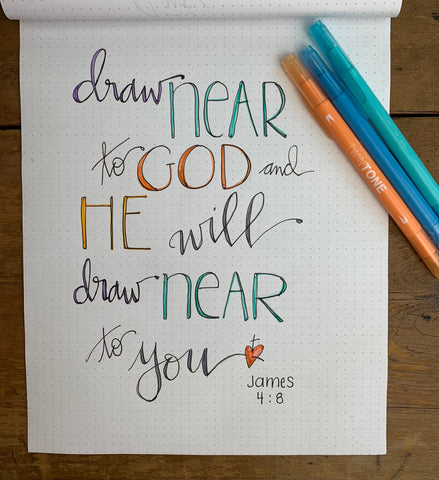 draw NEAR
to GOD and
HE will
draw NEAR
to you
James
4:8
TWINTONE